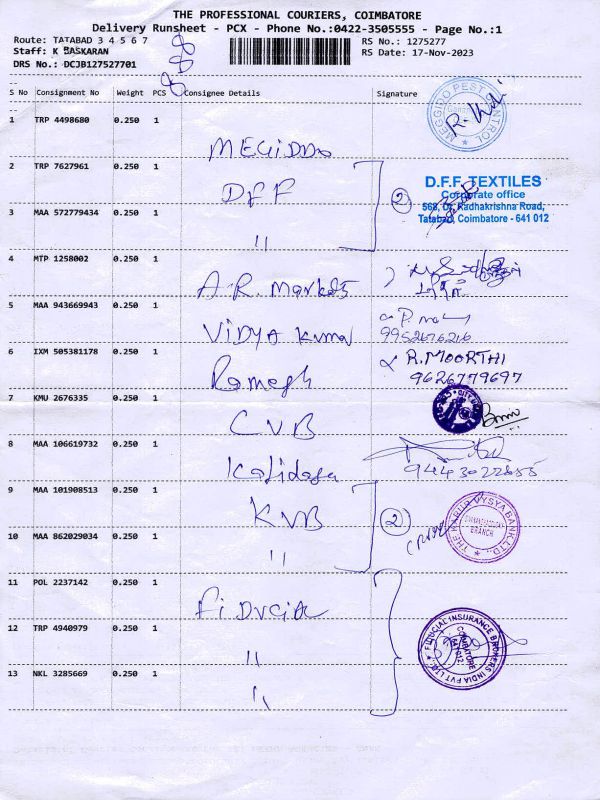 THE PROFESSIONAL COURIERS, COIMBATORE
Delivery Runsheet - PCX - Phone No.:0422-3505555 - Page No.:1
Route: TATABAD 3 4 5 6 7
RS No.: 1275277
Staff: K BASKARAN
RS Date: 17-Nov-2023
DRS No.: DCJB127527701
S No Consignment No Weight PCS Consignee Details Signature
1 TRP 4498680 0.250 1 MEGIDDO MEGGIDO PEST CONTROL
2 TRP 7627961 0.250 1 DFF
2
D.F.F. TEXTILES
Corporate office
568, Dr. Radhakrishna Road,
Tatabad, Coimbatore - 641 012
3 MAA 572779434 0.250 1 "
4 MTP 1258002 0.250 1 A.R. Markets
5 MAA 943669943 0.250 1 Vidya Kumar
9952676216
6 IXM 505381178 0.250 1 Ramesh R.MOORTHI
9626779697
7 KMU 2676335 0.250 1 CUB
8 MAA 106619732 0.250 1 Kalidasa
9 MAA 101908513 0.250 1 KVB
2
THE KARUR VYSYA BANK LTD.,
BRANCH
10 MAA 862029034 0.250 1 "
11 POL 2237142 0.250 1 Fiducia
12 TRP 4940979 0.250 1 "
FIDUCIAL INSURANCE BROKERS INDIA PVT LTD.
COIMBATORE
641 012
13 NKL 3285669 0.250 1 "